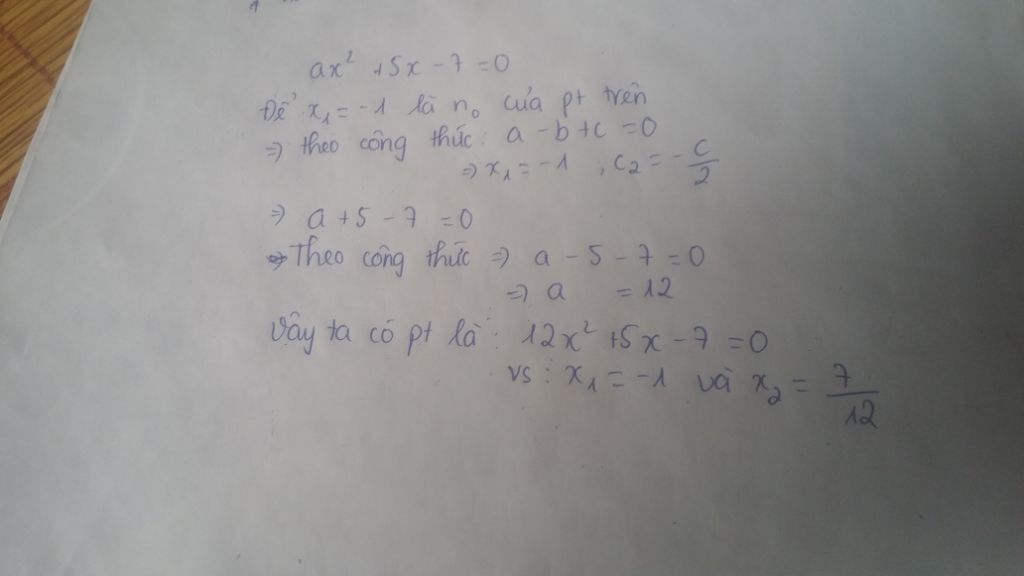 ax² + 5x - 7 = 0
Để x₁ = -1 là n₀ của pt trên
⇒ theo công thức: a - b + c = 0
⇒ x₁ = -1 , c₂ = - c/2
⇒ a + 5 - 7 = 0
⇒ Theo công thức ⇒ a - 5 - 7 = 0
⇒ a = 12
Vậy ta có pt là : 12x² + 5x - 7 = 0
vs : x₁ = -1 và x₂ = 7/12